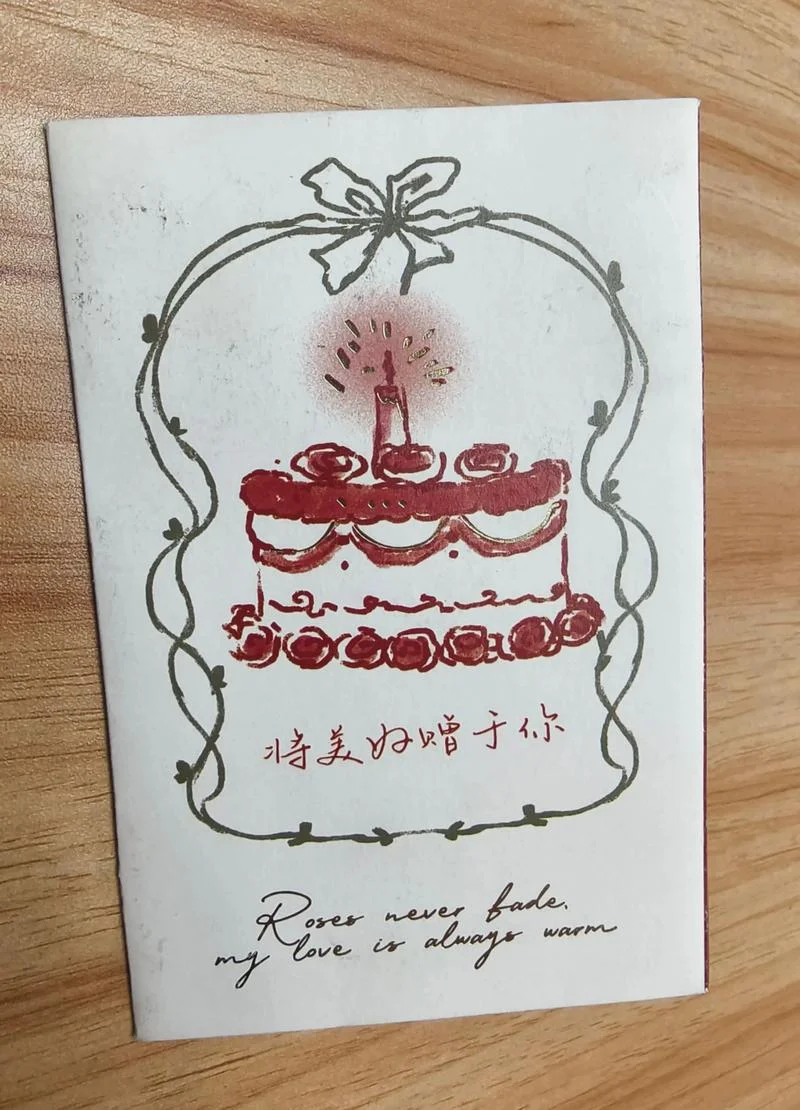 将美好赠于你
Roses never fade.
my love is always warm